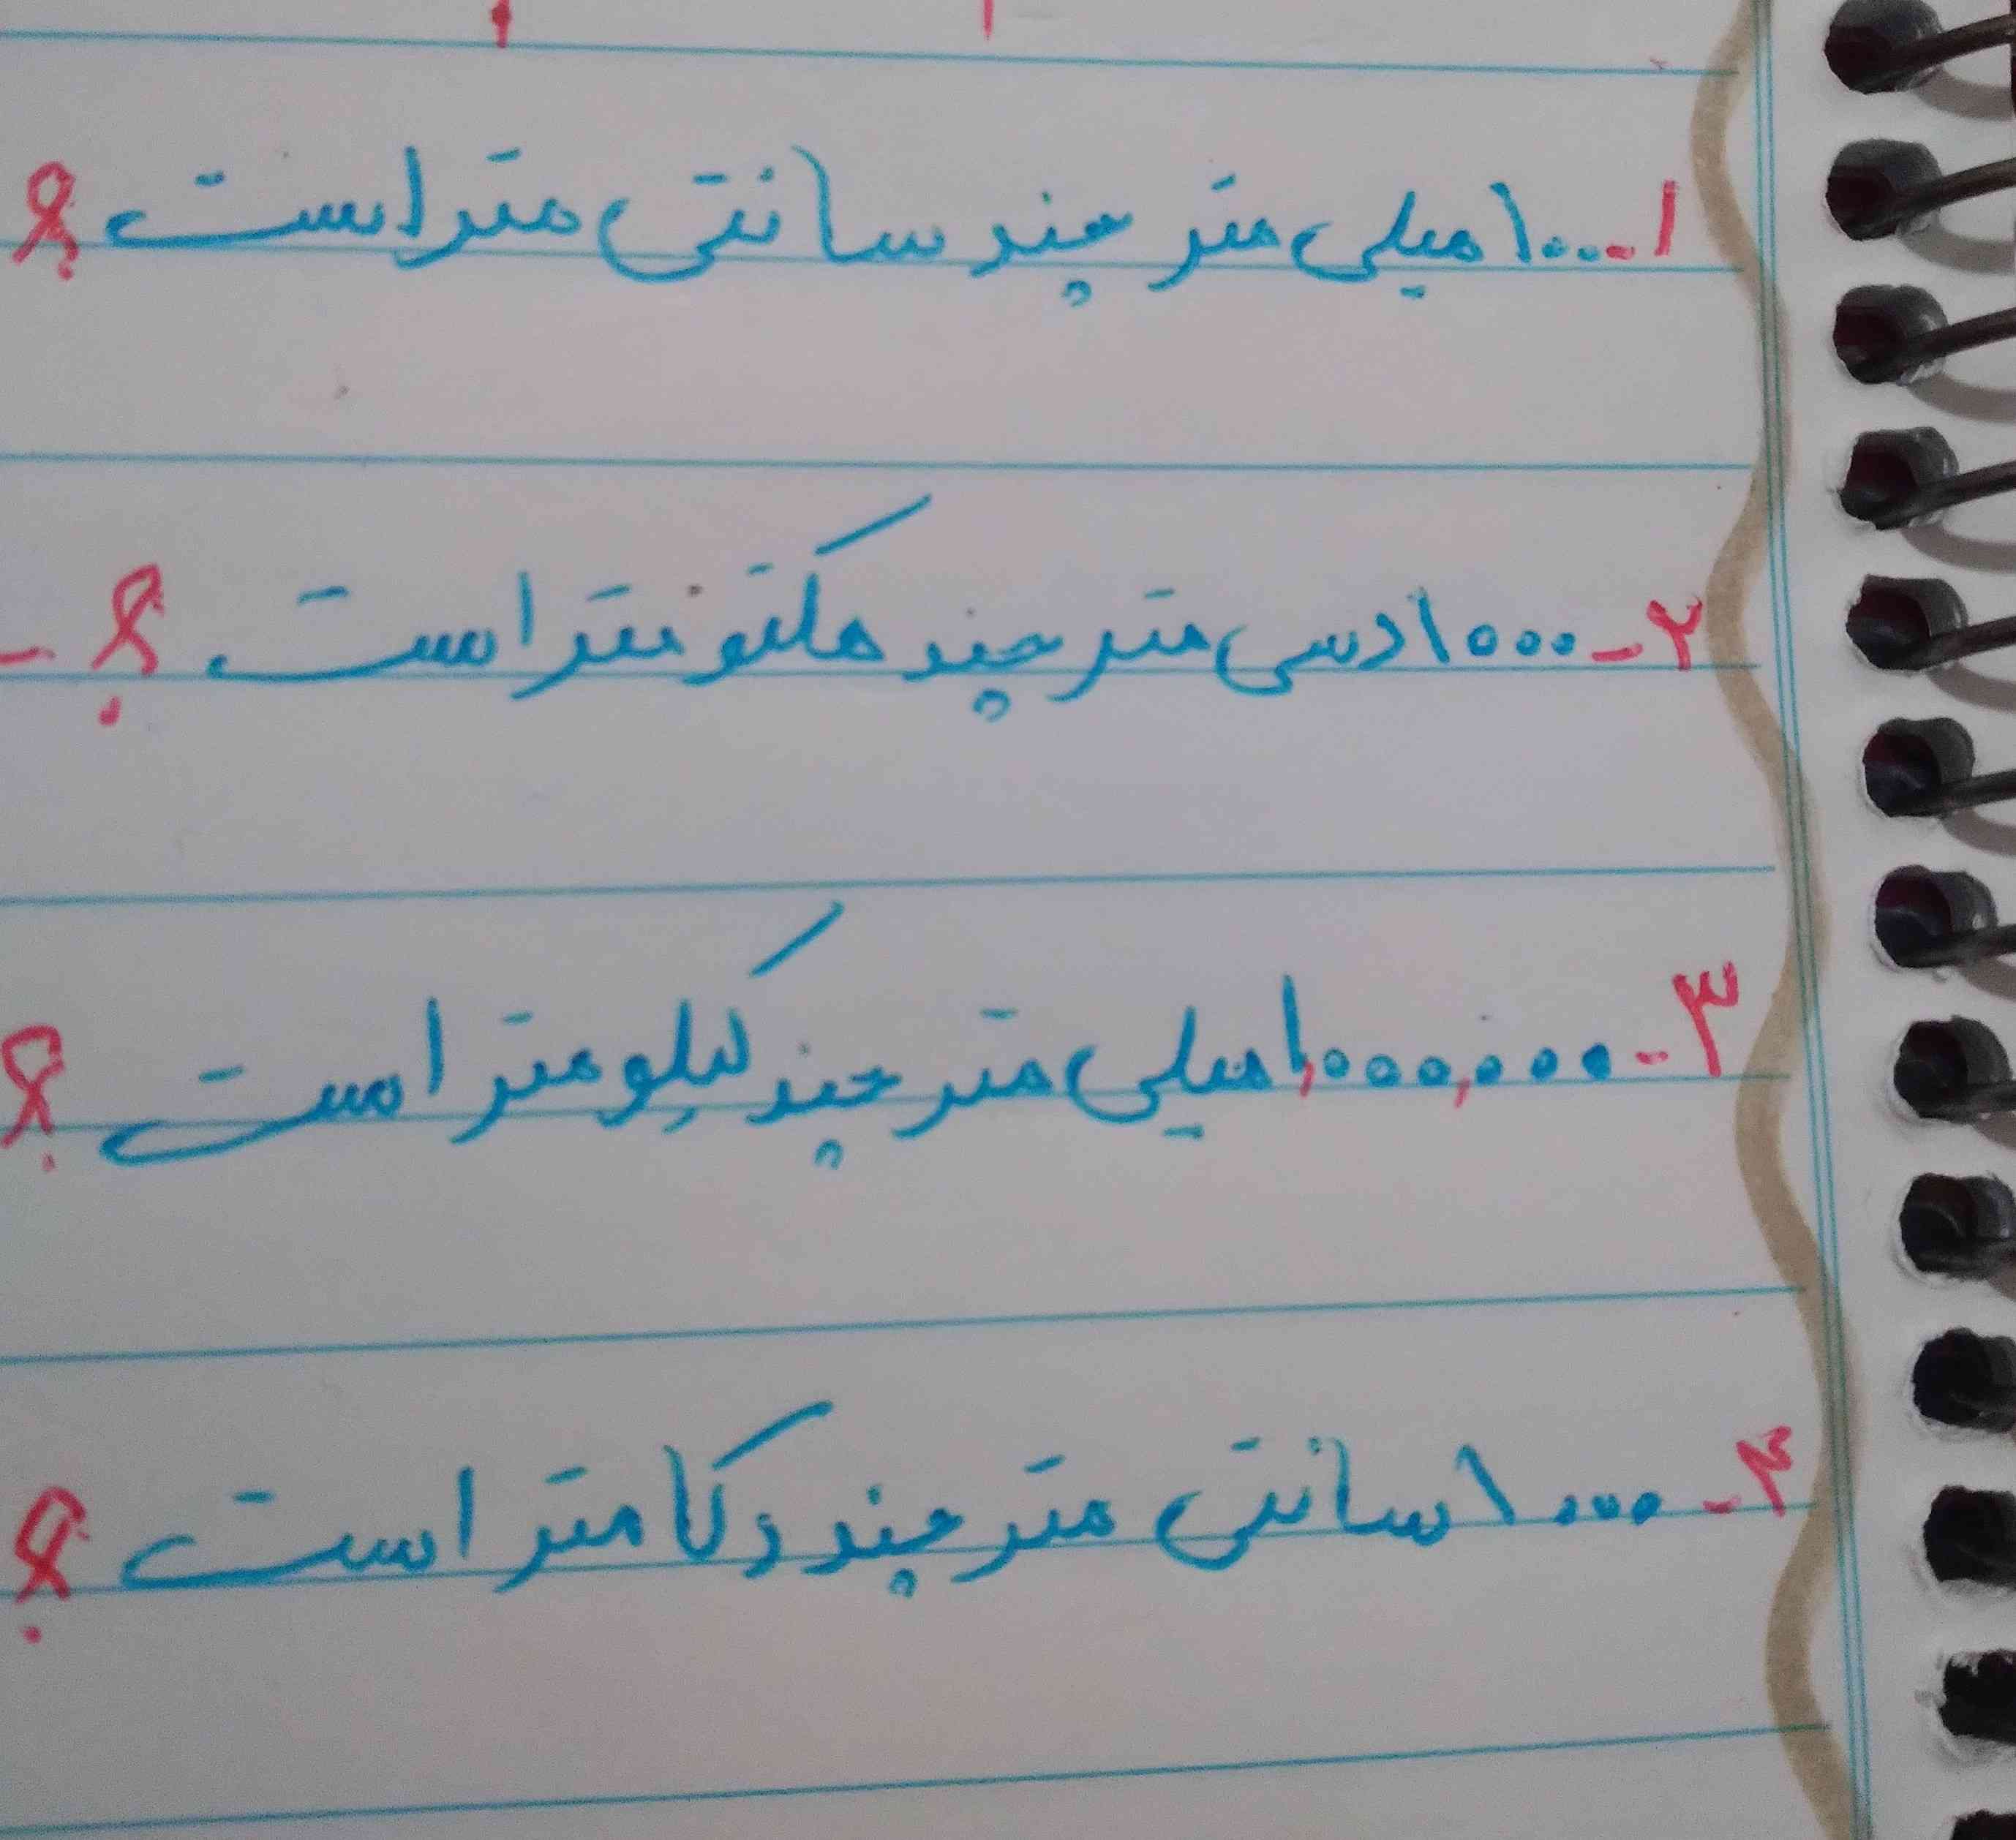 ۱ـ ۱۰۰۰ میلی متر چند سانتی متر است ؟
۲ـ ۱۰۰۰ دسی متر چند هکتو متر است ؟ -
۳ـ ۱,۰۰۰,۰۰۰ میلی متر چند کیلو متر است ؟
۴ـ ۱۰۰۰ سانتی متر چند دکا متر است ؟